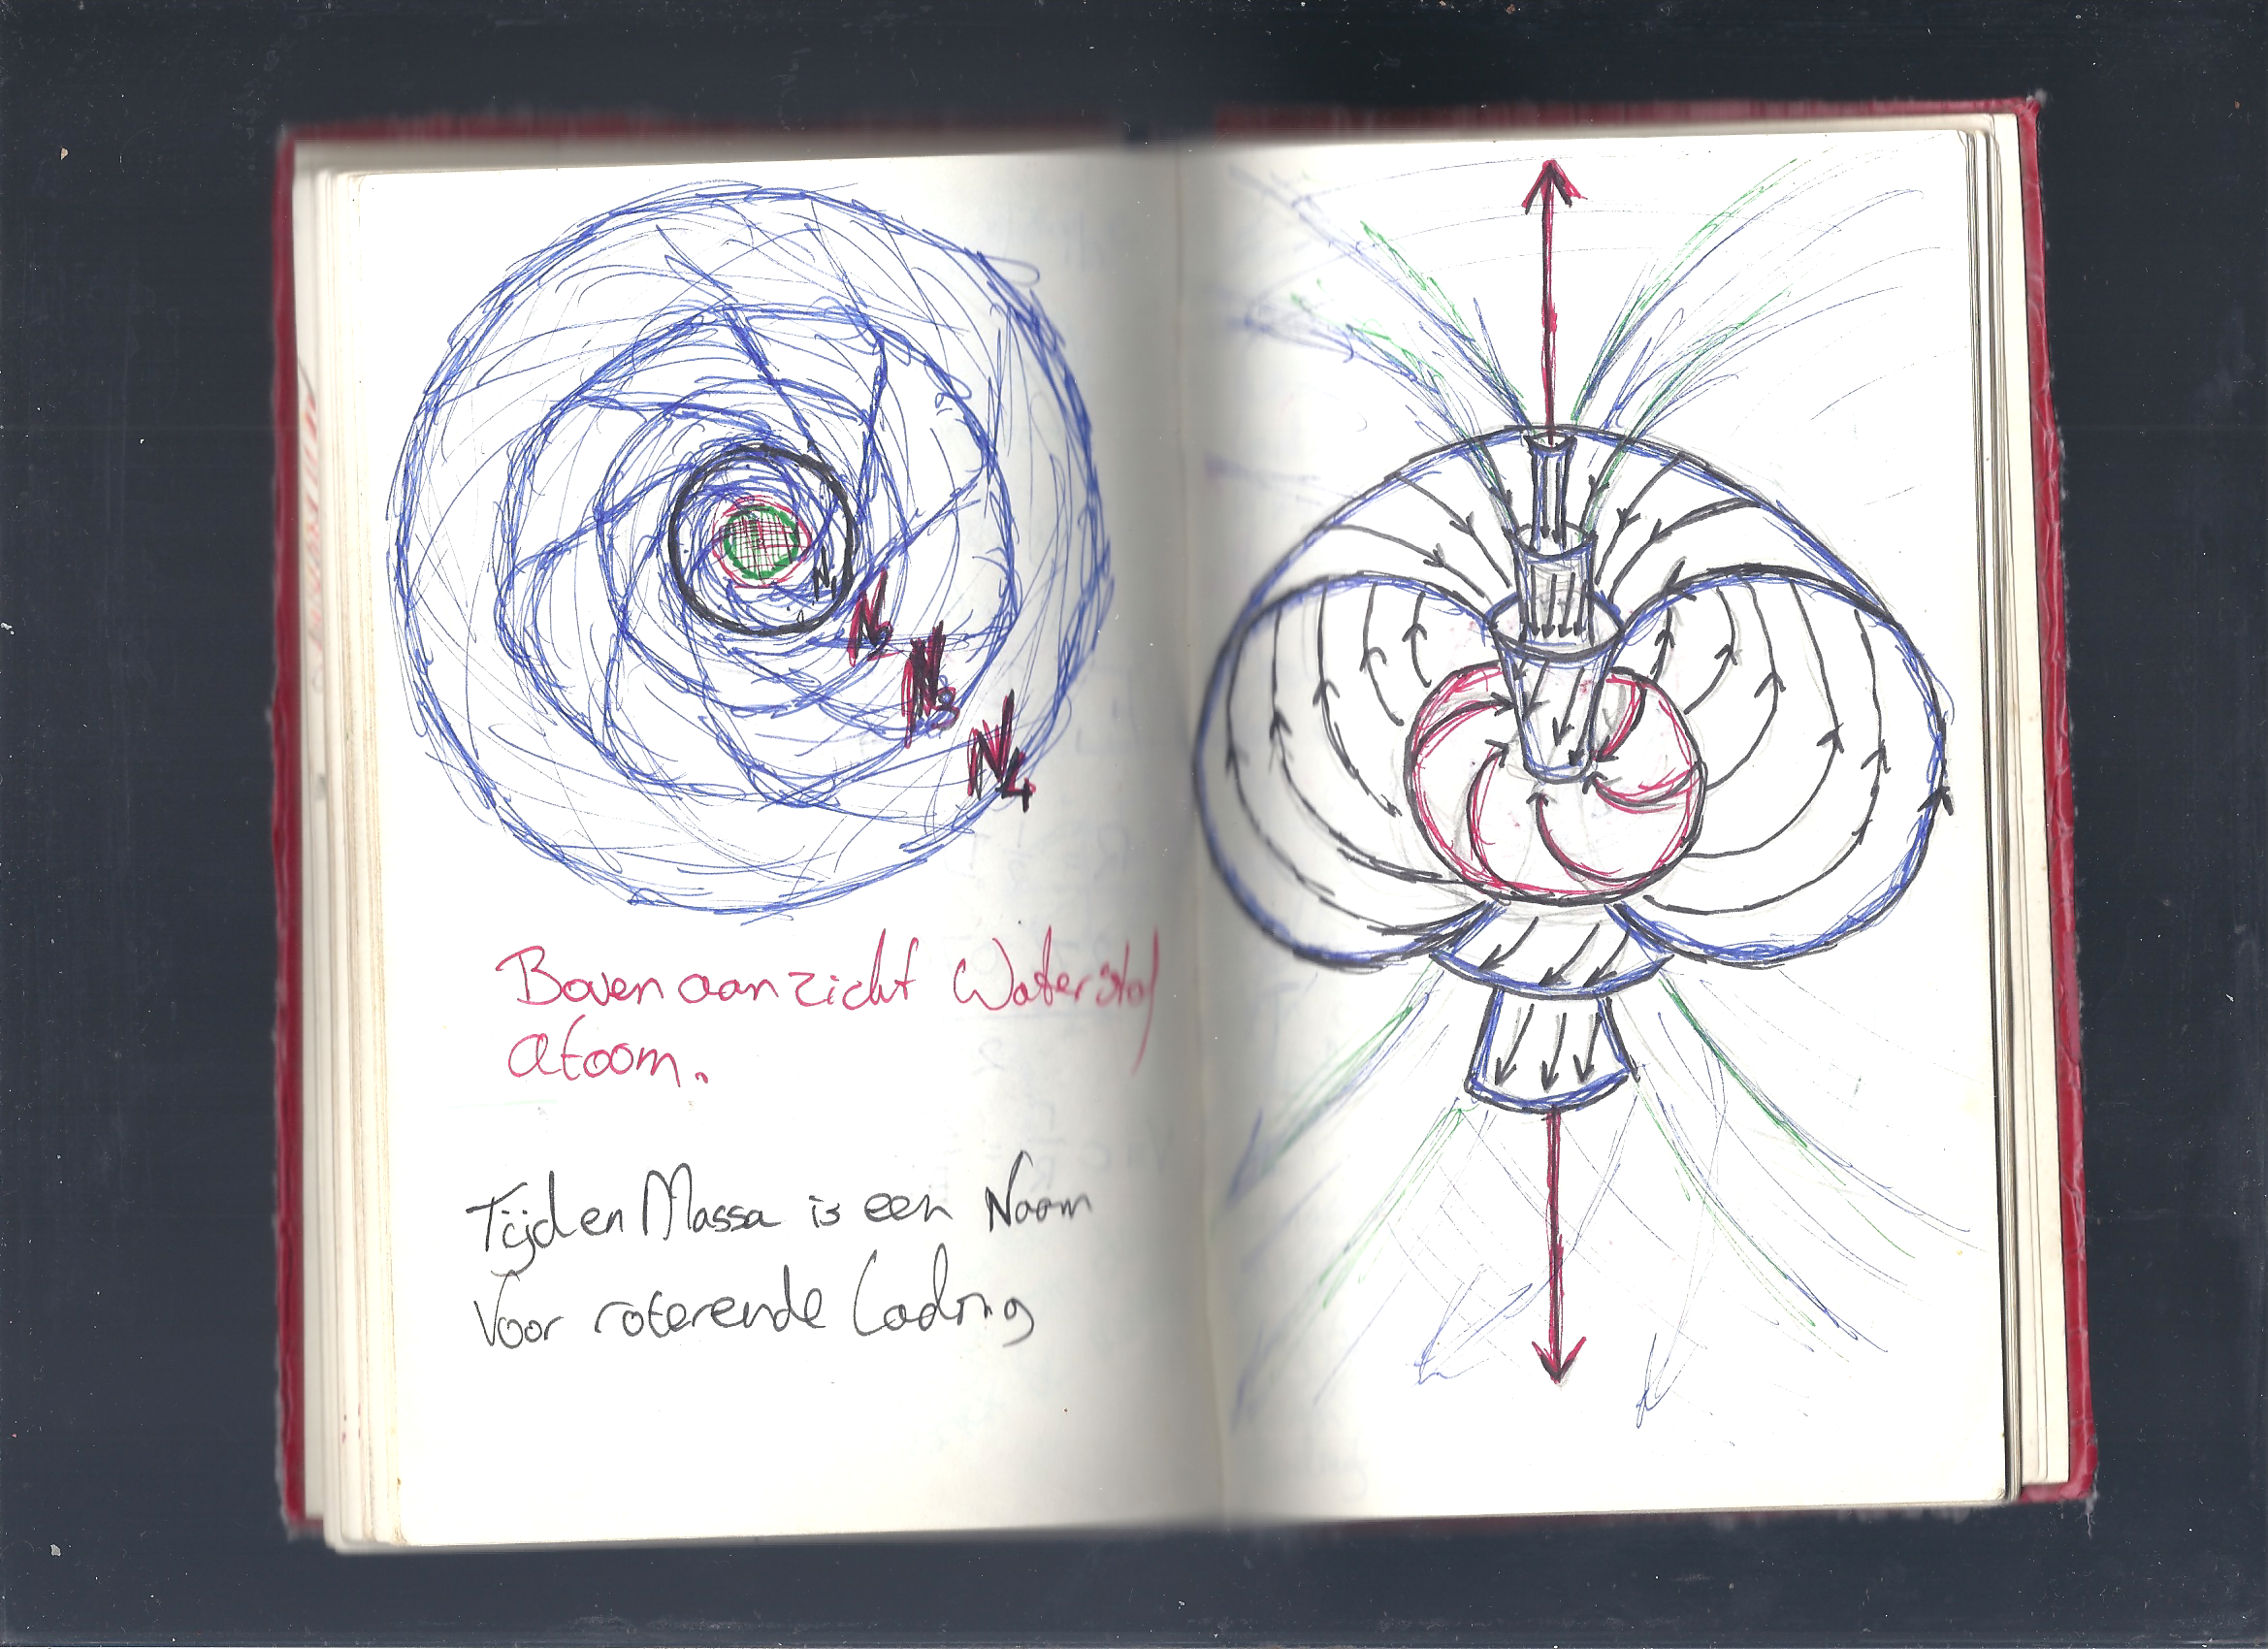 N1
N2
N3
N4
Bovenaanzicht Waterstof
atoom.
Tijd en Massa is een Naam
Voor roterende Lading